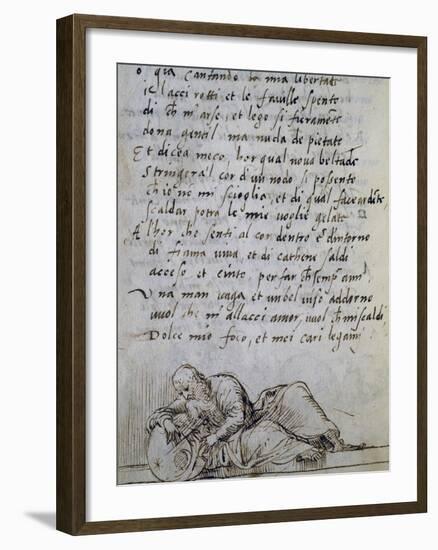 gia cantando la mia libertate
lacci rotti, et le faville spente
di ch m'arse, et lego si fieramẽte
dona gentil, ma nuda de pietate
Et dicea meco, hor qual nova beltade
Stringera'l cor d'un nodo si possente
ch'io nẽ mi scioglia, et di qual face ardẽte
scaldar potra le mie voglie gelate
Alhor che senti al cor dentro e d'intorno
di fiama viva, et di cathene saldi
acceso et cinto, per far ch semp ami
Una man vaga et un bel viso addorno
vuol che m'allacci amor, vuol ch mi scaldi
Dolce mio foco, et mei cari legami